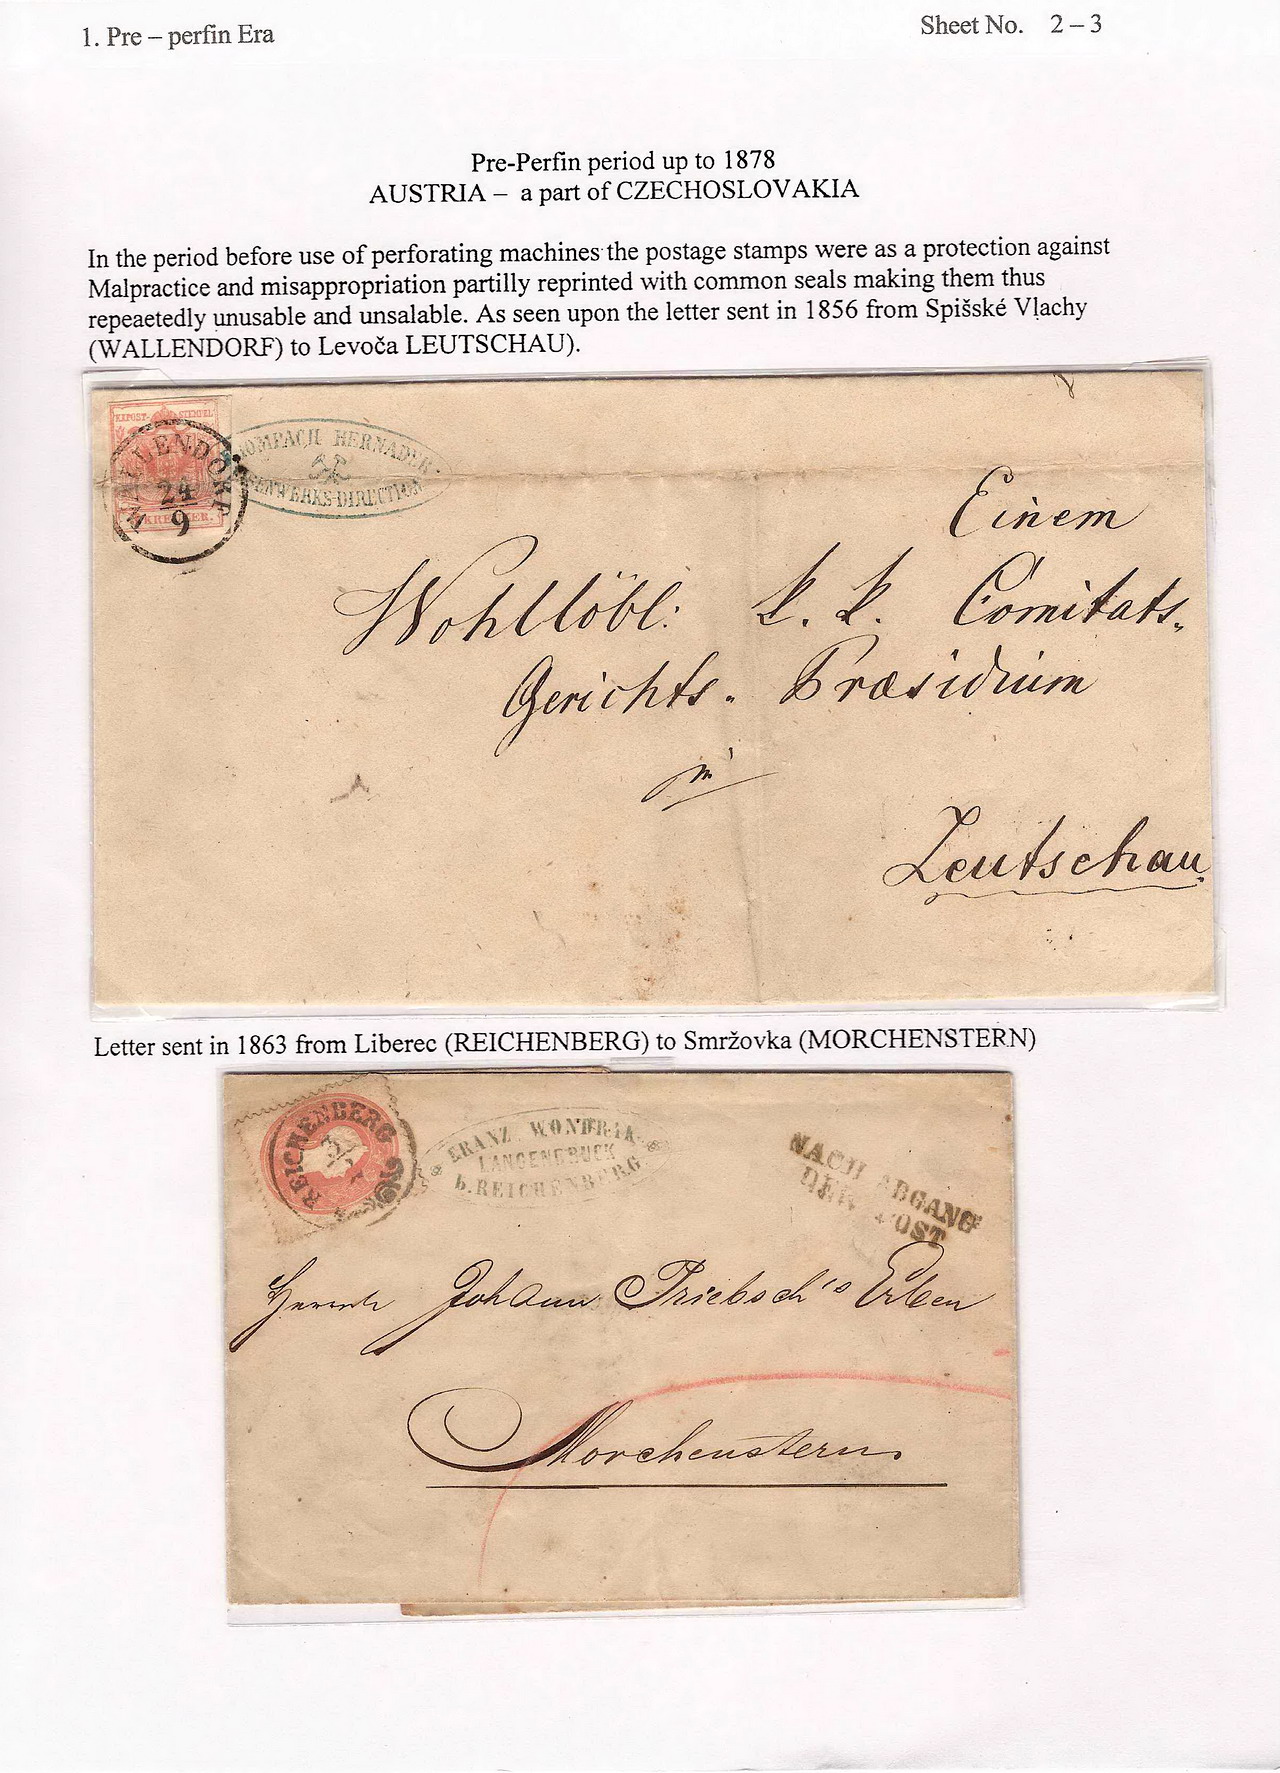 1. Pre – perfin Era
Sheet No. 2 – 3
Pre-Perfin period up to 1878
AUSTRIA – a part of CZECHOSLOVAKIA
In the period before use of perforating machines the postage stamps were as a protection against
Malpractice and misappropriation partilly reprinted with common seals making them thus
repeaetedly unusable and unsalable. As seen upon the letter sent in 1856 from Spišské Vlachy
(WALLENDORF) to Levoča LEUTSCHAU).
KKPOST-STEMPEL
WALLENDORF
24
9
KREUZER.
HERNADER
DIRECTION
Einem
Wohllöbl: k. k. Comitats-
Gerichts- Præsidium
in
Leutschau.
Letter sent in 1863 from Liberec (REICHENBERG) to Smržovka (MORCHENSTERN)
REICHENBERG
FRANZ WONDRAK
LANGENBRUCK
b. REICHENBERG
NACH ABGANG
DER POST
Herrn Johann Priebsch's Erben
Morchenstern.